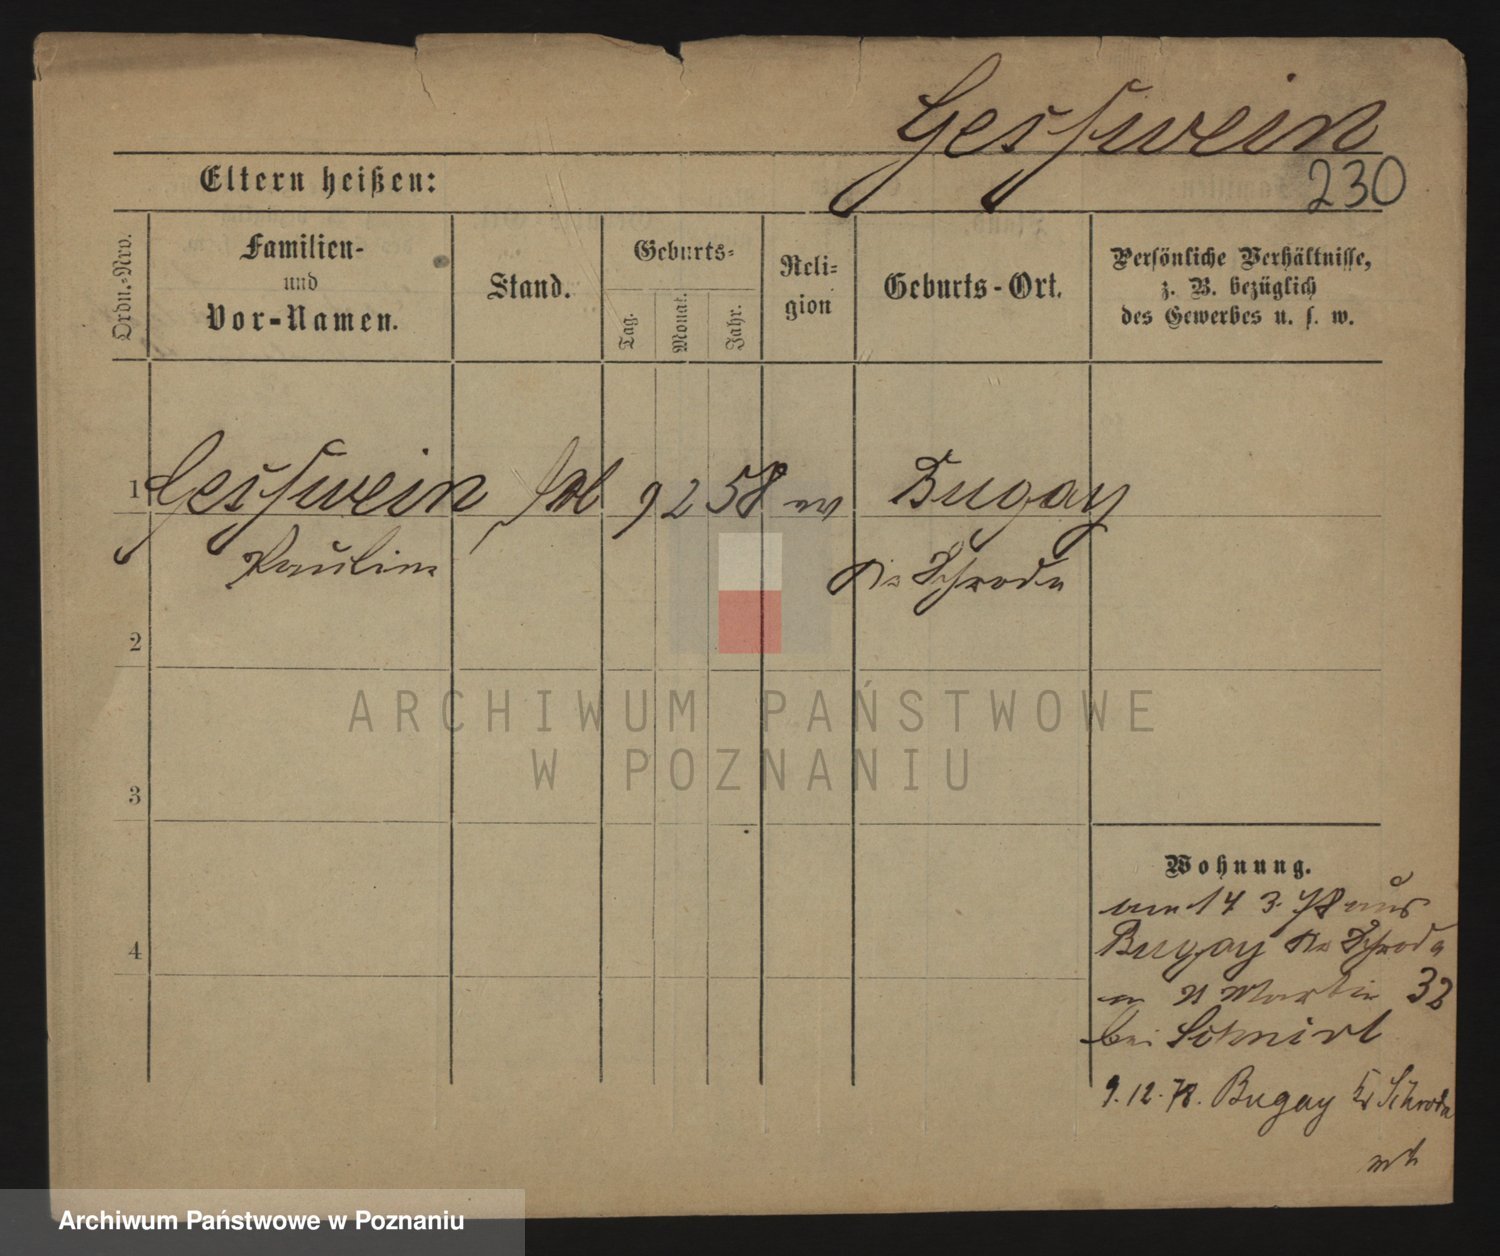 Gesswein
230
Eltern heißen:
Ordn.-Nro.
Familien-
und
Vor-Namen.
Stand.
Geburts-
Tag.
Monat.
Jahr.
Reli-
gion
Geburts-Ort.
Persönliche Verhältnisse,
z. B. bezüglich
des Gewerbes u. s. w.
1 Gesswein 9 2 58 ev Bugay
Pauline Kr Schroda
2
3
4
Wohnung.
am 14 3. 78 aus
Bugay Kr Schroda
Martin 32
bei
9. 12. 78. Bugay Kr Schroda
ARCHIWUM PAŃSTWOWE
W POZNANIU
Archiwum Państwowe w Poznaniu